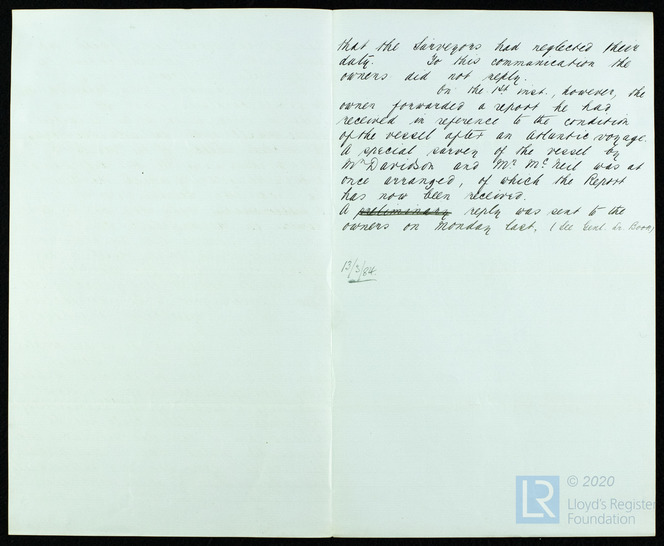 that the Surveyors had neglected their
duty. To this communication the
owners did not reply.
On the 1st inst., however, the
owner forwarded a report he had
received in reference to the condition
of the vessel after an Atlantic voyage.
A special survey of the vessel by
Mr Davidson and Mr McNeil was at
once arranged, of which the Report
has now been received.
A preliminary reply was sent to the
owners on Monday last. (See Genl. Lr. Book)
13/3/84
© 2020
LR
Lloyd's Register
Foundation